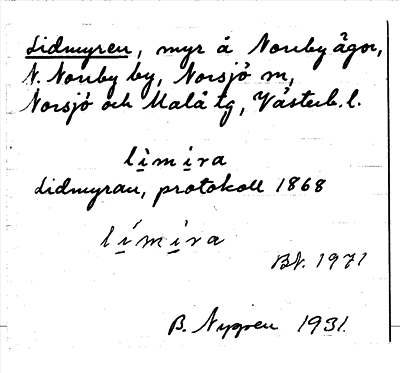 Lidmyren, myr å Norrby ägor,
N. Norrby by, Norsjö sn,
Norsjö och Malå tg, Västerb. l.
lìmira
Lidmyran, protokoll 1868
límira
Bt. 1971
B. Nygren 1931.